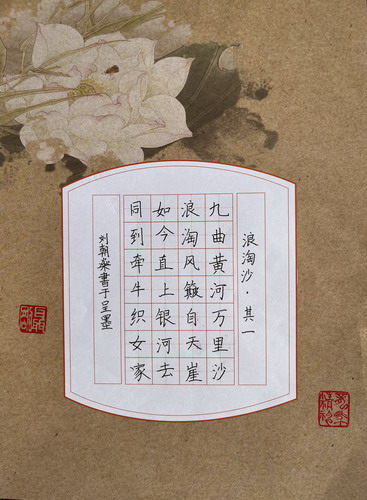 浪淘沙·其一
九曲黄河万里沙
浪淘风簸自天崖
如今直上银河去
同到牵牛织女家
刘朝燊書于呈墨